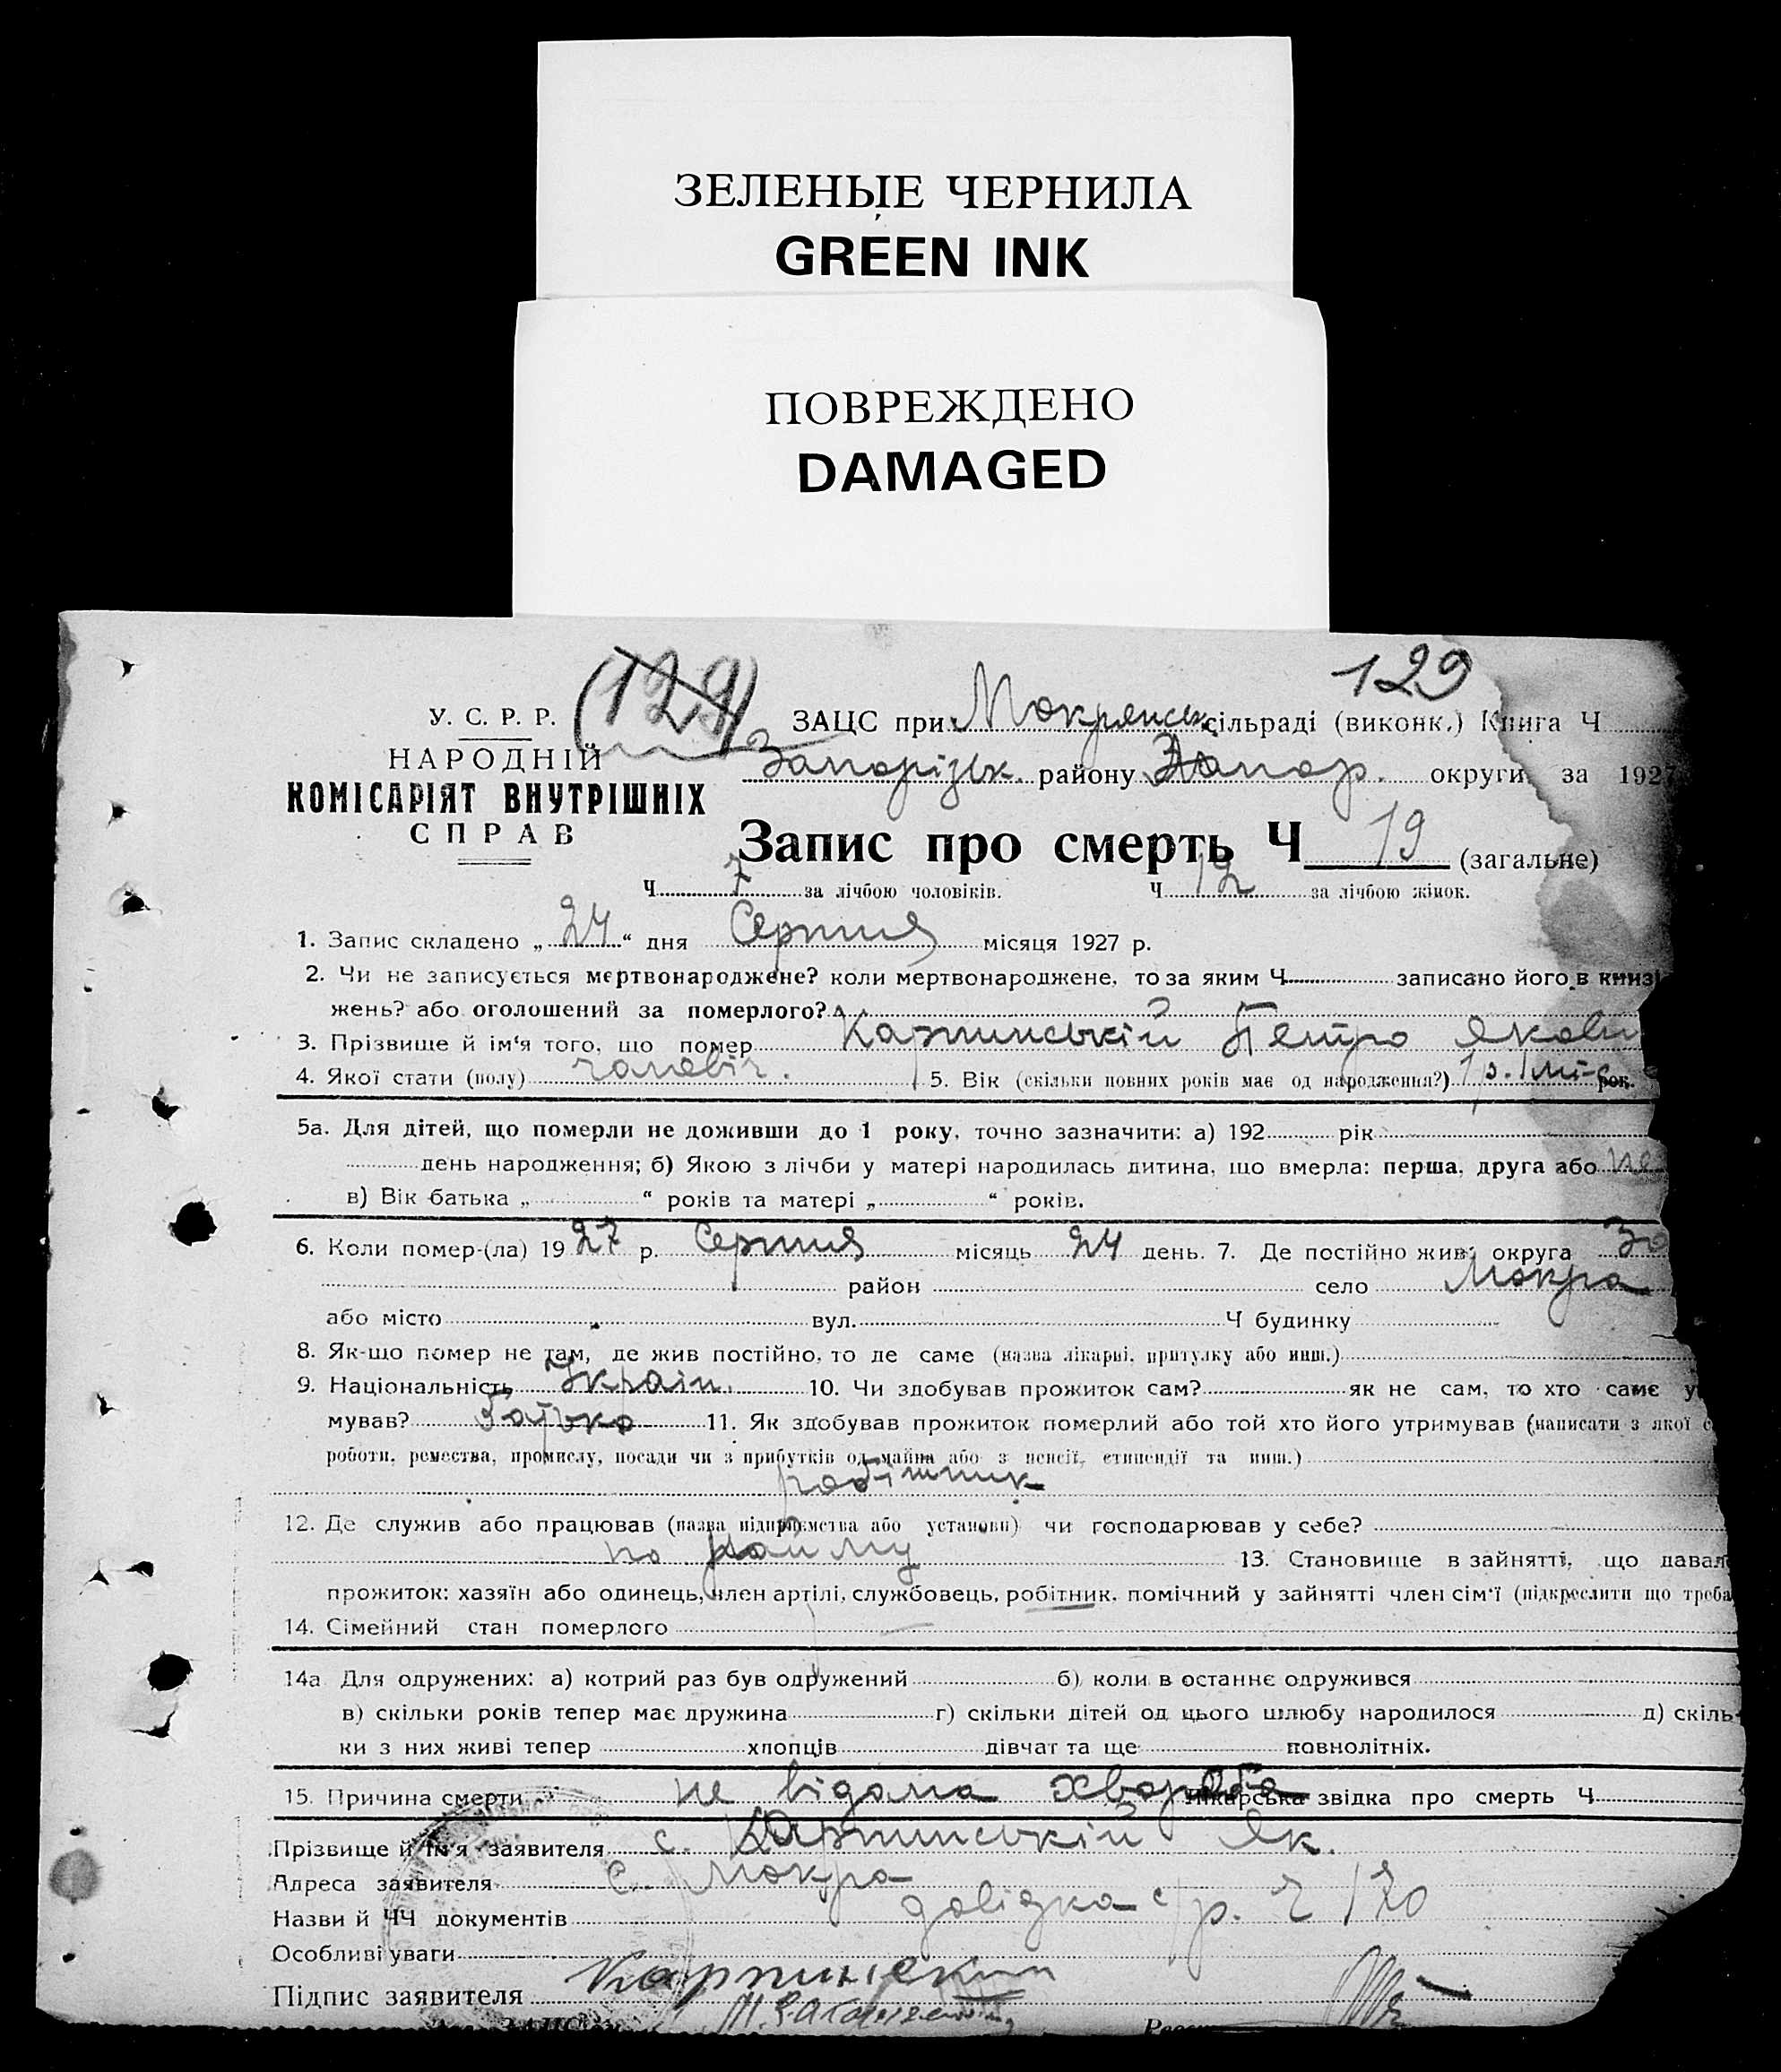 ЗЕЛЕНЫЕ ЧЕРНИЛА
GREEN INK
ПОВРЕЖДЕНО
DAMAGED
(129)
129
У. С. Р. Р.
НАРОДНІЙ
КОМІСАРІЯТ ВНУТРІШНІХ
СПРАВ
ЗАЦС при Мокрянськ. сільраді (виконк.) Книга Ч
Запорізьк. району Запор. округи за 1927
Запис про смерть Ч 19 (загальне)
Ч 7 за лічбою чоловіків. Ч 12 за лічбою жінок.
1. Запис складено „ 24 “ дня Серпня місяця 1927 р.
2. Чи не записується мертвонароджене? коли мертвонароджене, то за яким Ч записано його в книзі
жень? або оголошений за померлого?
3. Прізвище й ім‘я того, що помер Карпинський Петро Якови
4. Якої статі (полу) чоловіч. 5. Вік (скільки повних років має од народження?) 1 р. 1 міс рок.
5а. Для дітей, що померли не доживши до 1 року, точно зазначити: а) 192 рік
день народження; б) Якою з лічби у матері народилась дитина, що вмерла: перша, друга або
в) Вік батька „ “ років та матері „ “ років.
6. Коли помер-(ла) 1927 р. Серпня місяць 24 день. 7. Де постійно жив: округа За
район село Мокра
або місто вул. Ч будинку
8. Як-що помер не там, де жив постійно, то де саме (назва лікарні, притулку або инш.)
9. Національність Україн. 10. Чи здобував прожиток сам? як не сам, то хто саме у
мував? Батько 11. Як здобував прожиток померлий або той хто його утримував (написати з якої с
роботи, ремества, промислу, посади чи з прибутків од майна або з пенсії, стипендії та инш.)
робітник
12. Де служив або працював (назва підприємства або установи) чи господарював у себе?
по найму 13. Становище в зайнятті, що давал
прожиток: хазяїн або одинець, член артілі, службовець, робітник, помічний у зайнятті член сім‘ї (підкреслити що треба
14. Сімейний стан померлого
14а Для одружених: а) котрий раз був одружений б) коли в останнє одружився
в) скільки років тепер має дружина г) скільки дітей од цього шлюбу народилося д) скіль-
ки з них живі тепер хлопців дівчат та ще повнолітніх.
15. Причина смерти не відома хвороба Лікарська звідка про смерть Ч
Прізвище й ім‘я заявителя с. Карпинський Як.
Адреса заявителя с. Мокра
Назви й ЧЧ документів довідка с/р. Ч 170
Особливі уваги
Підпис заявителя Карпинский